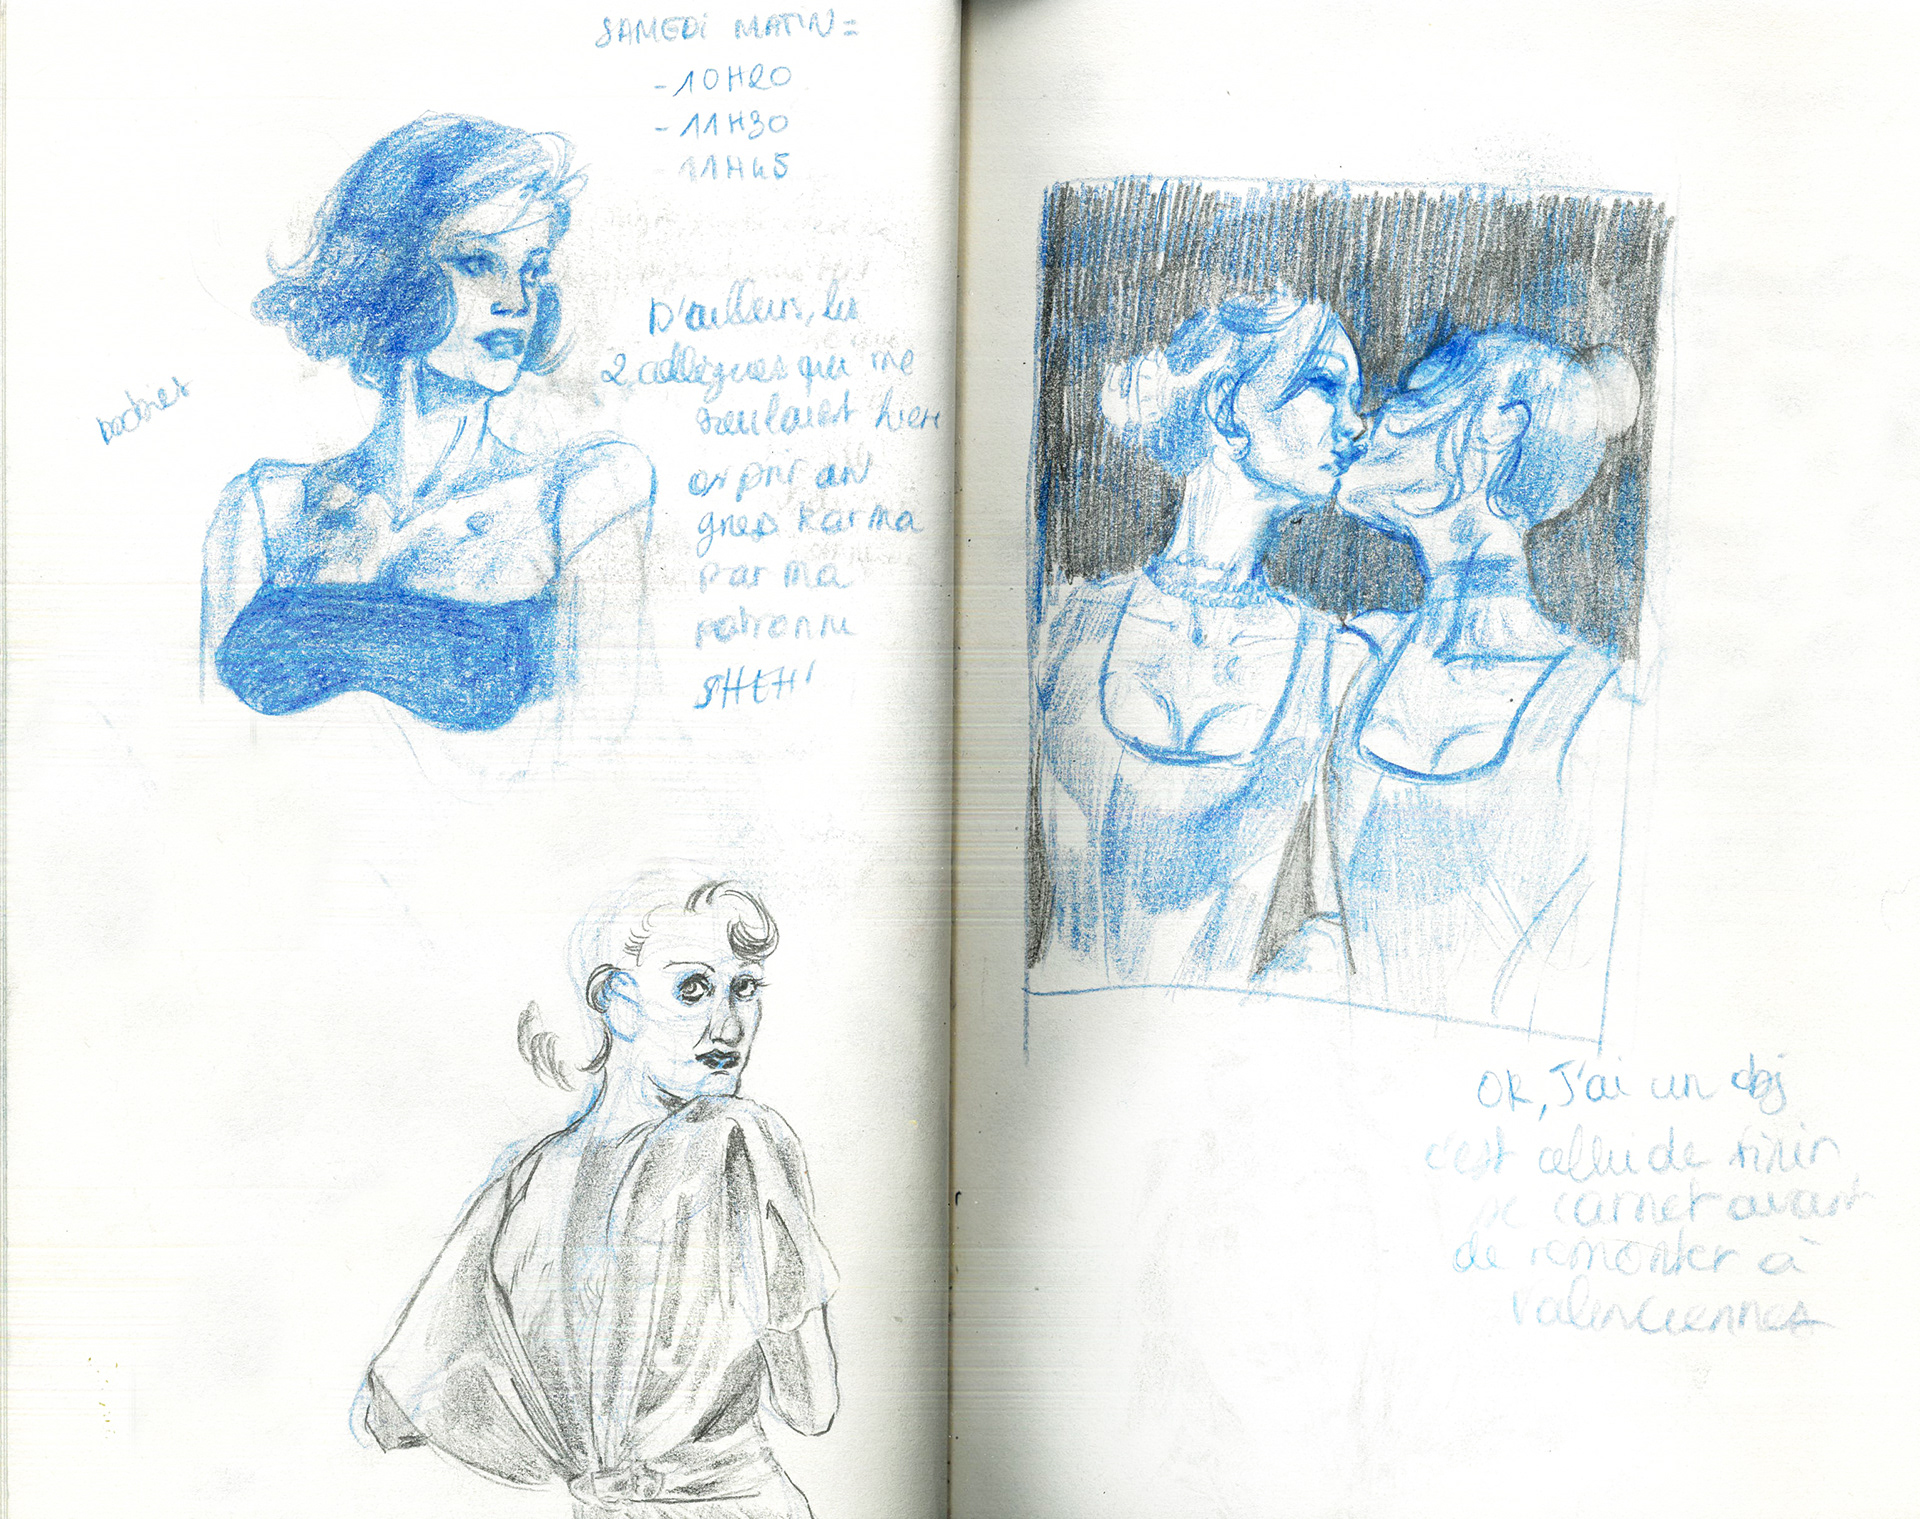 SAMEDI MATIN =
- 10H20
- 11H30
- 11H45
D'ailleurs, les
2 collègues qui me
saoulaient hier
on pris un
gros karma
par ma
patronne
SHEH!
OK, J'ai un obj
c'est cellui de finir
ce carnet avant
de remonter à
Valenciennes